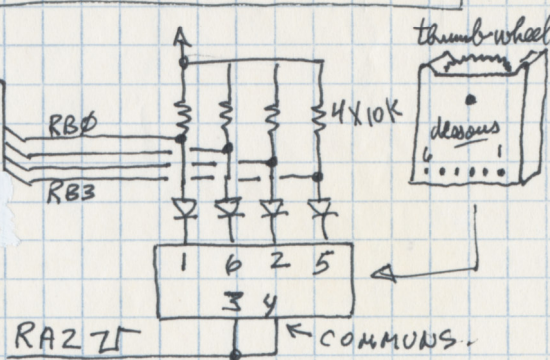 thumb-wheel
RBØ
4X10K
dessous
6 1
RB3
1 6 2 5
3 4
RAZ
COMMUNS.